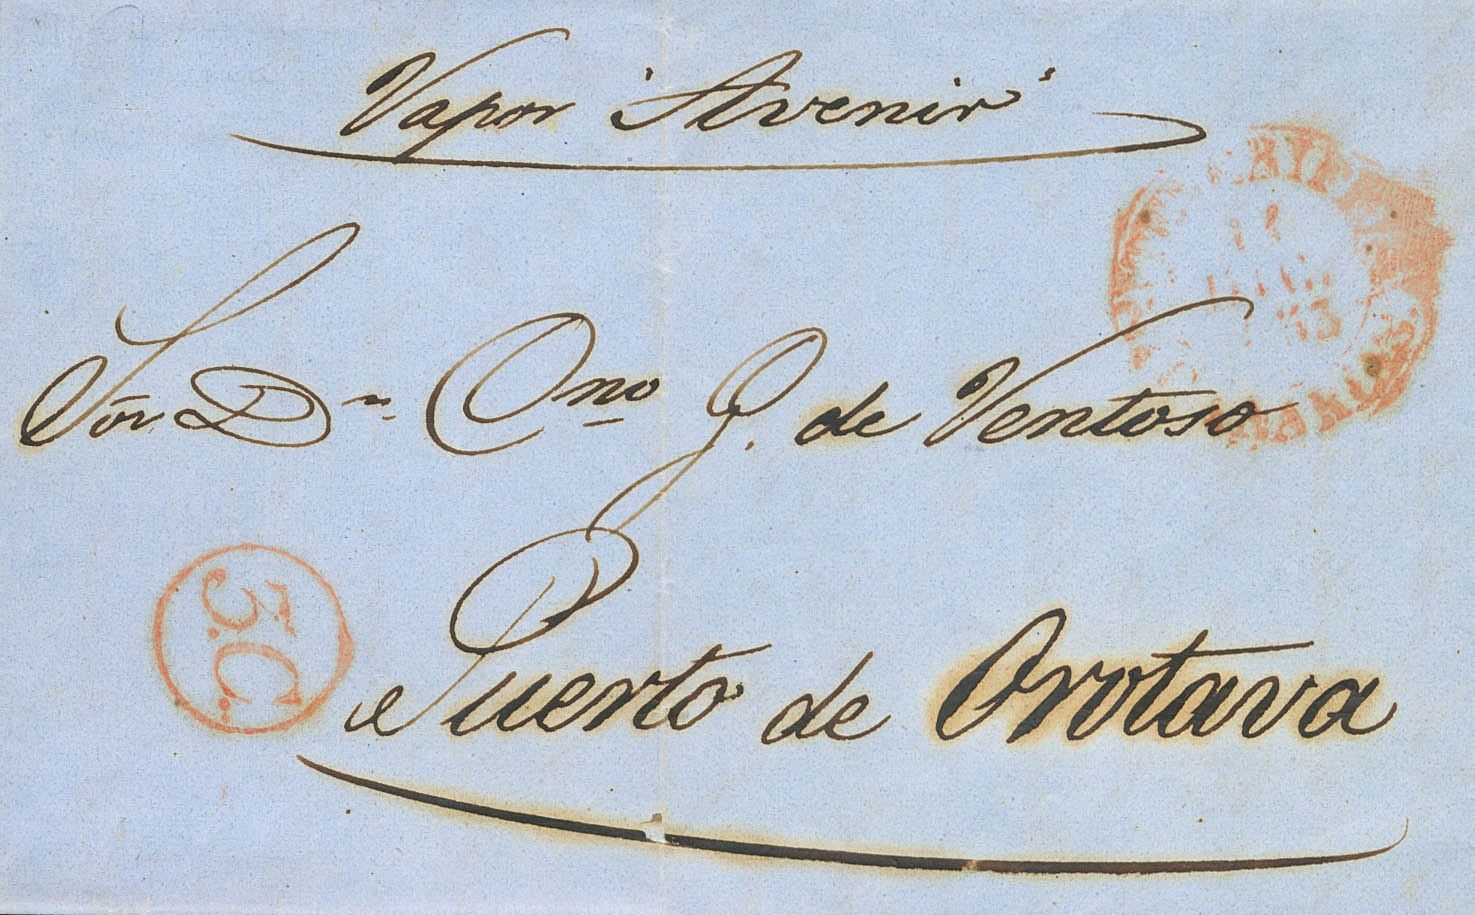 Vapor "Avenir"
Sor. Dn. Cno. J. de Ventoso
Puerto de Orotava
3.C.